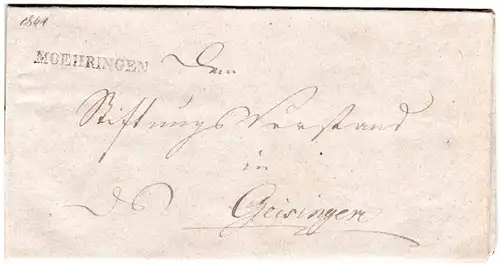 1841
MOEHRINGEN
Dem
Stiftungs Vorstand
in
Geisingen